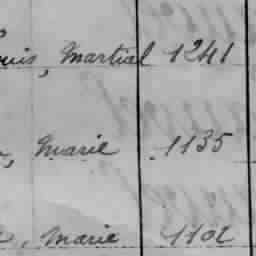 uis, Martial 1241
, Marie 1135
, Marie 1102